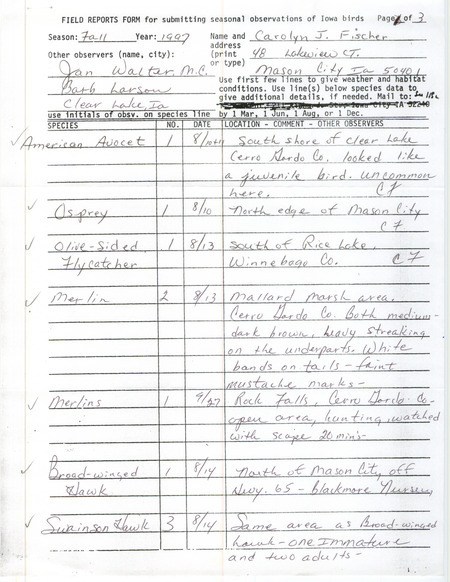 FIELD REPORTS FORM for submitting seasonal observations of Iowa birds Page 1 of 3
Season: Fall Year: 1997 Name and Carolyn J. Fischer
Other observers (name, city): address
(print 48 Lakeview CT.
or type)
Jan Walter, M.C. Mason City Ia 50401
Barb Larson
Clear Lake, Ia
Use first few lines to give weather and habitat
conditions. Use line(s) below species data to
give additional details, if needed. Mail to:
use initials of obsv. on species line by 1 Mar, 1 Jun, 1 Aug, or 1 Dec.
SPECIES NO. DATE LOCATION - COMMENT - OTHER OBSERVERS
American Avocet 1 8/10th South shore of Clear Lake
Cerro Gordo Co. looked like
a juvenile bird. uncommon
here. CF
Osprey 1 8/10 North edge of Mason City
CF
Olive-Sided 1 8/13 South of Rice Lake,
Flycatcher Winnebago Co. CF
Merlin 2 8/13 Mallard Marsh area.
Cerro Gordo Co. Both medium-
dark brown, heavy streaking
on the underparts. White
bands on tails - faint
mustache marks -
Merlins 1 9/27 Rock Falls, Cerro Gordo Co-
open area, hunting, watched
with scope 20 min's-
Broad-winged 1 8/14 North of Mason City off
Hawk Hwy. 65 - Blackmore Nursery
Swainson Hawk 3 8/14 Same area as Broad-winged
hawk - one Immature
and two adults-